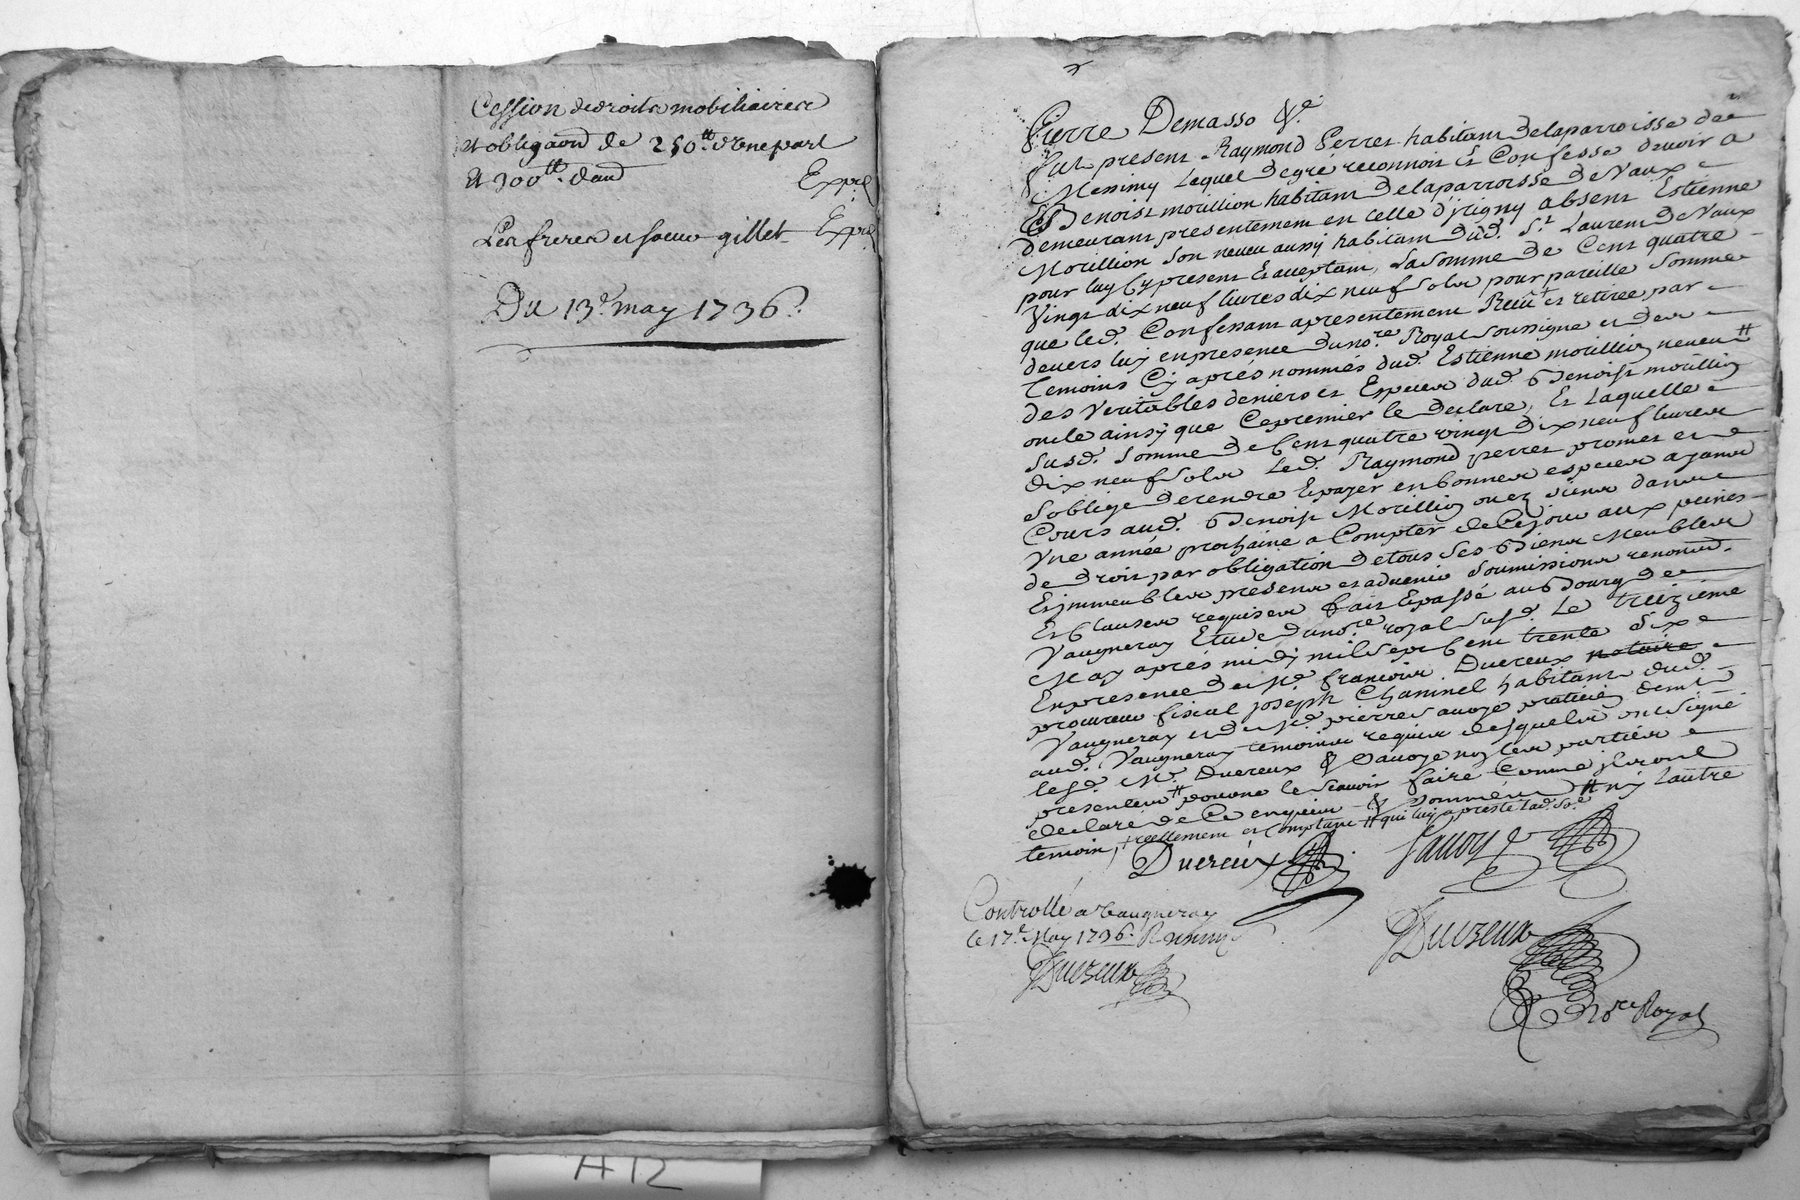 Cession de droits mobiliaires
et obligaon de 250tt d'une part
et 300tt d'aud
Expé
Les freres et soeur gillet Expé
Du 13e may 1736.
Pierre Demasso &c
fut present Raymond Perret habitant de la parroisse de
Messimy Lequel de gré reconnoit et Confesse devoir a
Benoist morillion habitant de la parroisse de Vaux
demeurant presentement en celle d'jrigny absent Estienne
Morillion son neveu aussy habitant dud. St Laurent de Vaux
pour luy Cy present et acceptant, La somme de Cent quatre
Vingt dix neuf livres dix neuf sols pour pareille somme
que led. Confessant a presentement Reeu et retirée par
devers luy en presence du nore Royal soussigné et des
Temoins Cy aprés nommés dud. Estienne morillion neveu tt
des veritables deniers et Especes dud. Benoist morillion
oncle ainsy que Ce premier le declare, Et Laquelle
susd. somme de Cent quatre vingt dix neuf livres
dix neuf sols Led. Raymond perret promet et
s'oblige de rendre Et payer en bonnes especes ayant
Cours aud. Benoist Morillion ou ez siens dans
Vne année prochaine a Compter de Ce jour aux peines
de droit par obligation de tous ses Biens Meubles
Et jmmeubles presens et advenir soumissions renond.
Et Clauses requises fait Et passé au Bourg de
Vaugneray Etude du nore royal susd. Le treizieme
May aprés midy mil sept Cent trente six
En presence de Me francois Duereux notaire
procureur fiscal joseph Chaninel habitant dud.
Vaugneray et de Me pierre Sauoye praticien demt
aud. Vaugneray temoins requis desquels ont signé
lesd. Me Duereux & Sauoye non les parties
presentes pour ne le scauoir faire Comme jls ont
declaré de Ce enquis & sommés tt ny Lautre
temoin, reellement et Comptant tt qui luy a presté lad. soe
Duereux Sauoye
Controllé a Vaugneray
le 17e May 1736. R
Duereux
Duereux
nore Royal
A12